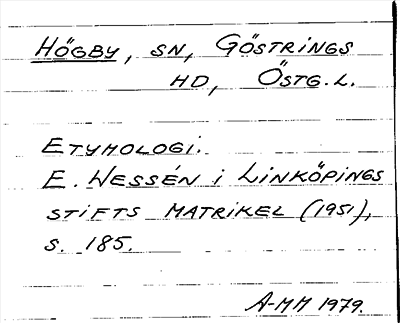 HÖGBY, SN, GÖSTRINGS
HD, ÖSTG.L.
ETYMOLOGI.
E. WESSÉN i LINKÖPINGS
STIFTS MATRIKEL (1951),
S. 185.
A-MM 1979.